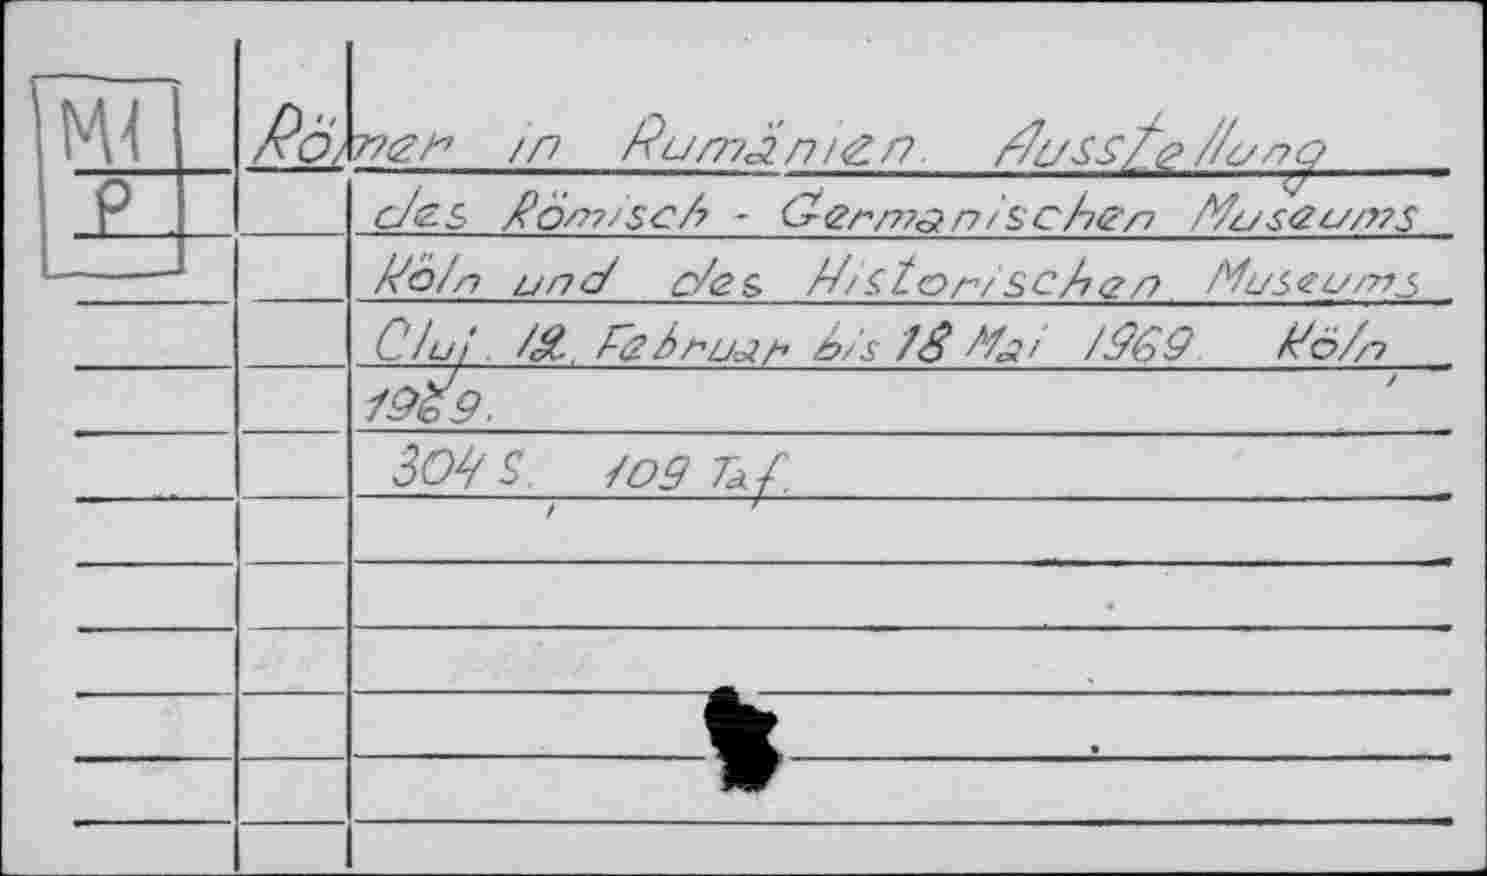 M1
P
Römer in Rumänien. Ausstellung
des Römisch - Germanischen Museums
Köln und des Historischen Museums
Cluj. 12. Februar bis 18 Mai 1969. Köln
1969.
304 S. 109 Taf.